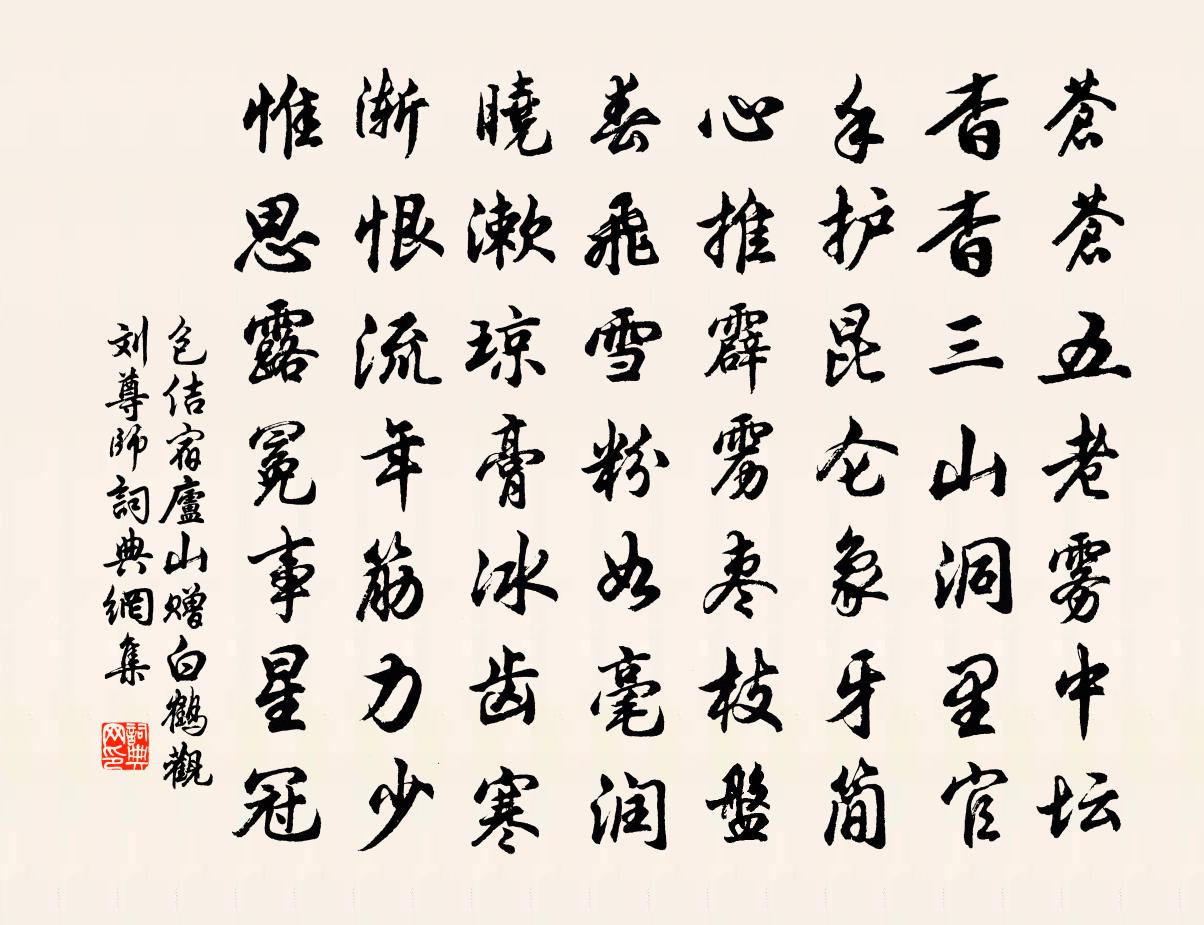 蒼蒼五老雾中坛
杳杳三山洞里官
手护昆仑象牙简
心推霹雳枣枝盤
春飛雪粉如毫润
曉漱琼膏冰齿寒
渐恨流年筋力少
惟思露冕事星冠
包佶宿廬山赠白鶴觀
刘尊師詞典網集
詞典网印